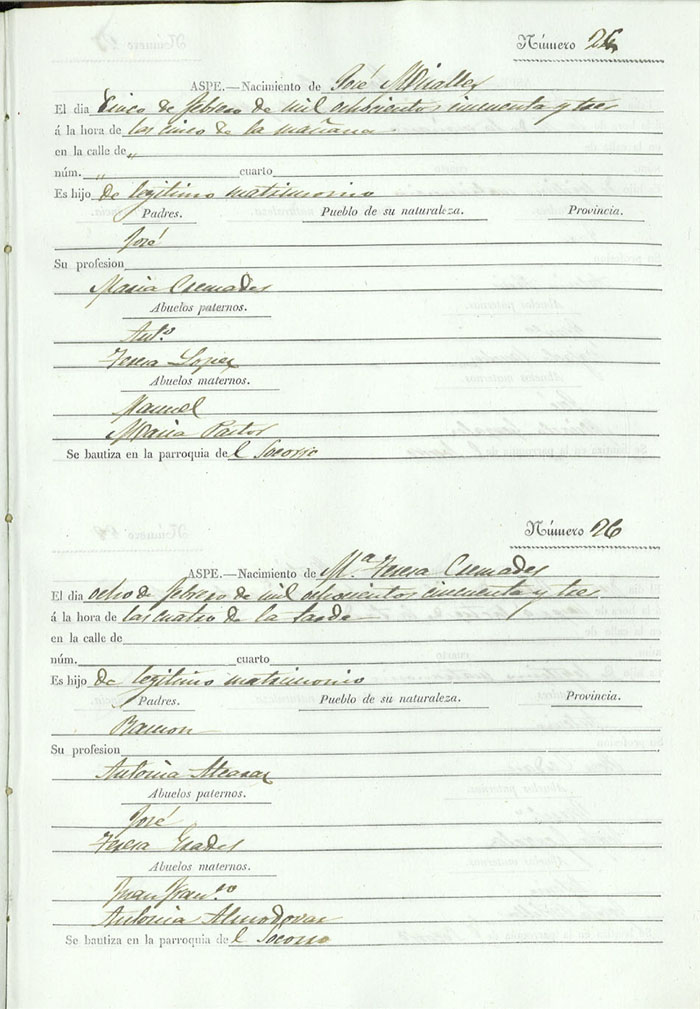 Número 25
ASPE.—Nacimiento de José Miralles
El dia Cinco de febrero de mil ochocientos cincuenta y tres
á la hora de las cinco de la mañana
en la calle de „
núm. „ cuarto
Es hijo de legitimo matrimonio
Padres. Pueblo de su naturaleza. Provincia.
José
Su profesion
Maria Cremades
Abuelos paternos.
Ant.º
Teresa Lopez
Abuelos maternos.
Manuel
Maria Pastor
Se bautiza en la parroquia de l Socorro
Número 26
ASPE.—Nacimiento de Mª Teresa Cremades
El dia ocho de febrero de mil ochocientos cincuenta y tres
á la hora de las cuatro de la tarde
en la calle de
núm. cuarto
Es hijo de legitimo matrimonio
Padres. Pueblo de su naturaleza. Provincia.
Ramon
Su profesion
Antonia Alcaraz
Abuelos paternos.
José
Teresa Prades
Abuelos maternos.
Juan Fran.co
Antonia Almodovar
Se bautiza en la parroquia de l Socorro